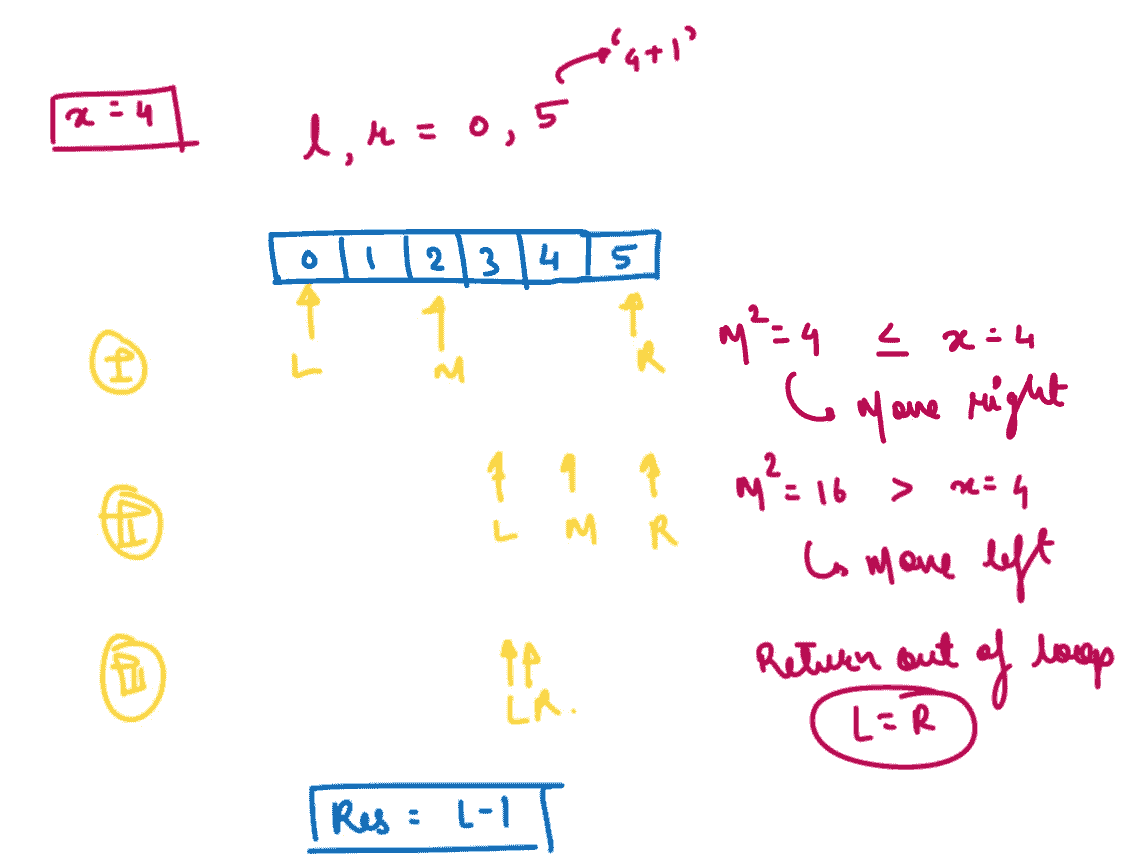 '4+1'
x = 4
l, r = 0, 5
0 1 2 3 4 5
I
L M R
M² = 4 ≤ x = 4
Move right
II
L M R
M² = 16 > x = 4
Move left
III
L R.
Return out of loop
L = R
Res = L-1